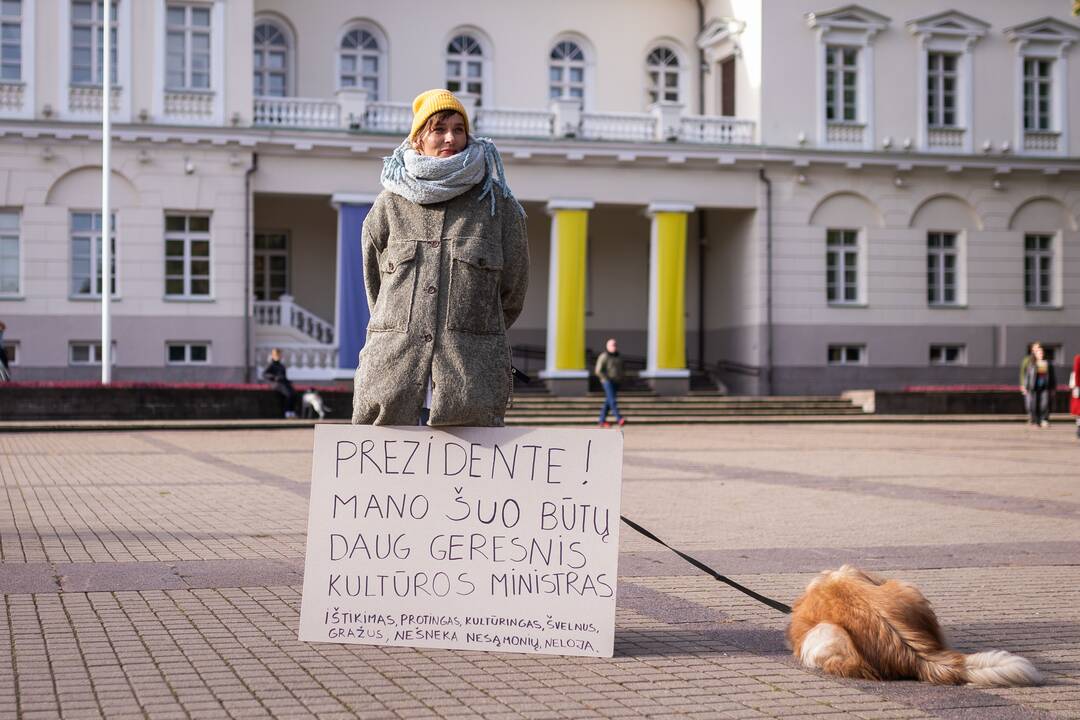 PREZIDENTE!
MANO ŠUO BŪTŲ
DAUG GERESNIS
KULTŪROS MINISTRAS
IŠTIKIMAS, PROTINGAS, KULTŪRINGAS, ŠVELNUS,
GRAŽUS, NEŠNEKA NESĄMONIŲ, NELOJA.